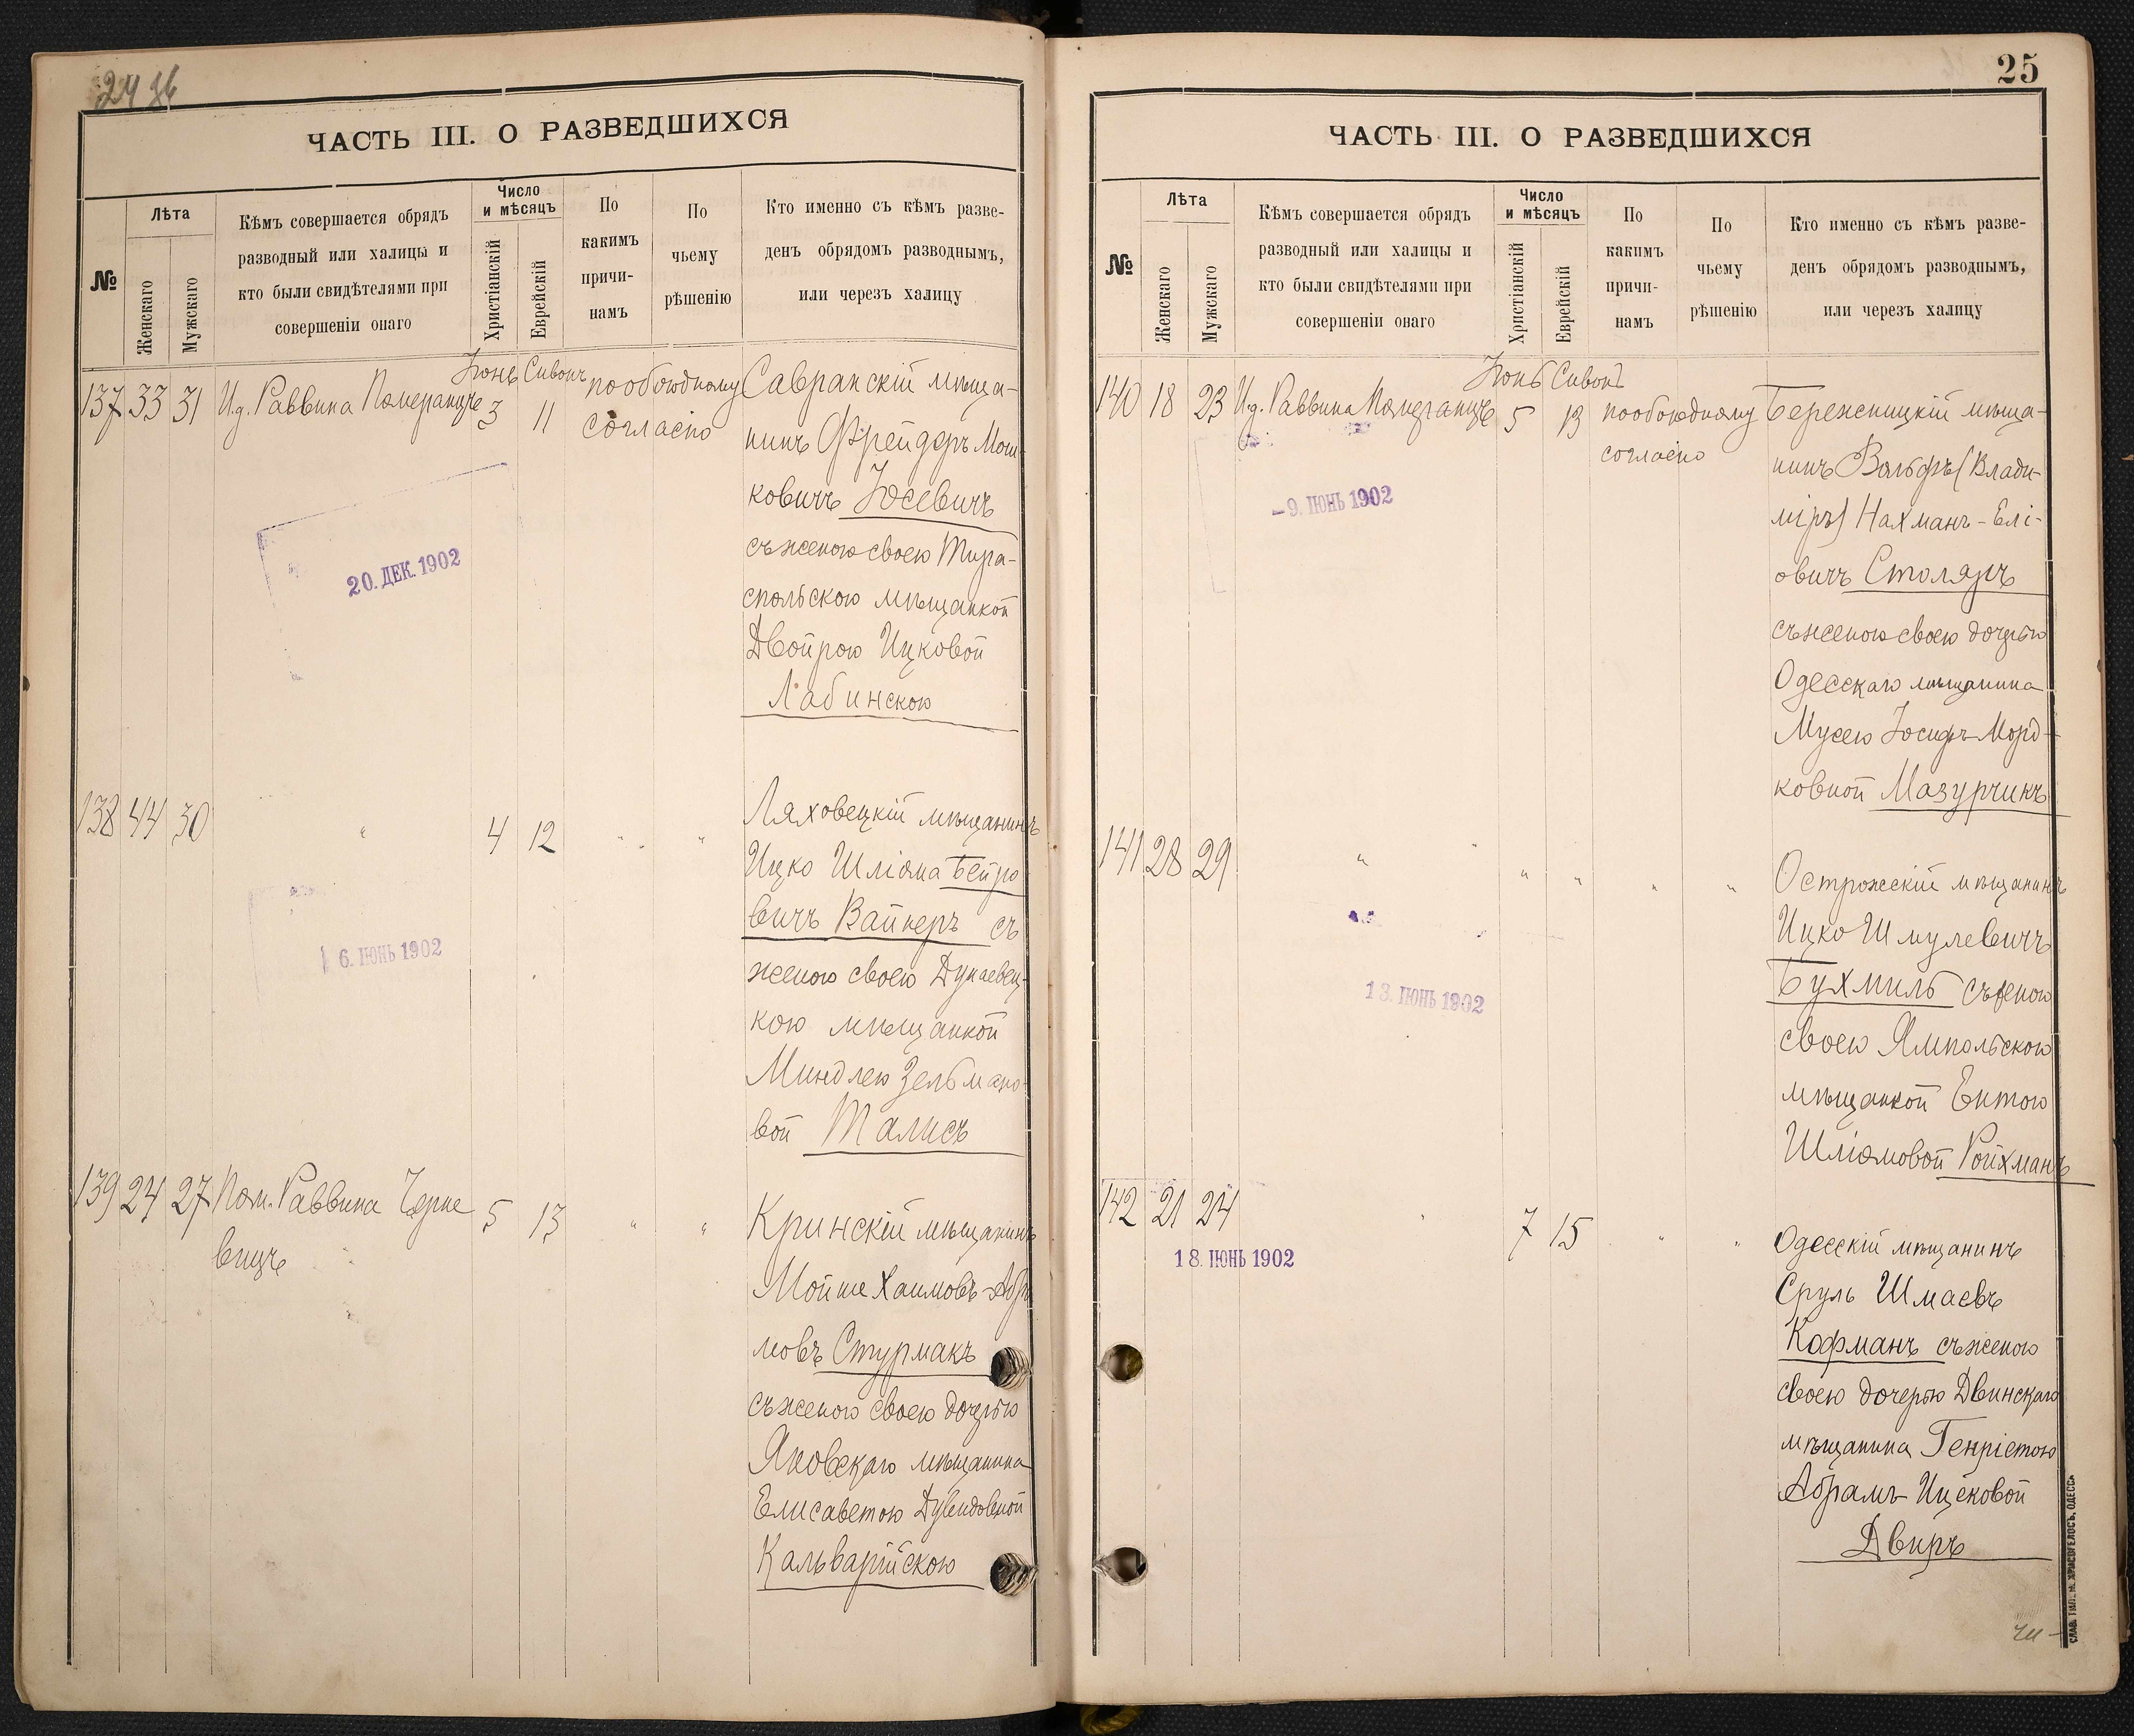 24 36
ЧАСТЬ III. О РАЗВЕДШИХСЯ
№
Лѣта
Женскаго
Мужскаго
Кѣмъ совершается обрядъ
разводный или халицы и
кто были свидѣтелями при
совершеніи онаго
Число
и мѣсяцъ
Христіанскій
Еврейскій
По
какимъ
причи-
намъ
По
чьему
рѣшенію
Кто именно съ кѣмъ разве-
денъ обрядомъ разводнымъ,
или черезъ халицу
137 33 31 И.д. Раввина Померанцъ
Іюнь 3
Сивонъ 11
по обоюдному
согласію
Савранскій мѣща-
нинъ Фрейдеръ Мош-
ковичъ Юсевичъ
съ женою своею Тира-
спольскою мѣщанкой
Двойрою Ицковой
Лабинскою
20. ДЕК. 1902
138 44 30 " 4 12 " "
Ляховецкій мѣщанинъ
Ицко Шліома Бейро-
вичъ Вайнеръ съ
женою своею Дунаевец-
кою мѣщанкой
Миндлею Зельмано-
вой Талисъ
6. ІЮНЬ 1902
139 24 27 Пом. Раввина Черне
вицъ
5 13 " "
Кринскій мѣщанинъ
Мойше Хаимовъ-Абра
мовъ Стурмакъ
съ женою своею дочерью
Яновскаго мѣщанина
Елисаветою Дувидовной
Кальварійскою
25
ЧАСТЬ III. О РАЗВЕДШИХСЯ
№
Лѣта
Женскаго
Мужскаго
Кѣмъ совершается обрядъ
разводный или халицы и
кто были свидѣтелями при
совершеніи онаго
Число
и мѣсяцъ
Христіанскій
Еврейскій
По
какимъ
причи-
намъ
По
чьему
рѣшенію
Кто именно съ кѣмъ разве-
денъ обрядомъ разводнымъ,
или черезъ халицу
140 18 23 И.д. Раввина Померанцъ
Іюнь 5
Сивонъ 13
по обоюдному
согласію
Бережницкій мѣща-
нинъ Вольфъ (Влади-
міръ) Нахманъ-Елі-
овичъ Столяръ
съ женою своею дочерью
Одесскаго мѣщанина
Мусею Іосифъ-Морд-
ковной Мазурчикъ
–9. ІЮНЬ 1902
141 28 29 " " " " " "
Острожскій мѣщанинъ
Ицко Шмулевичъ
Бухмиль съ женою
своею Ямпольскою
мѣщанкой Ентою
Шліомовой Ройхманъ
13. ІЮНЬ 1902
142 21 24 " 7 15 " "
Одесскій мѣщанинъ
Сруль Шмаевъ
Кофманъ съ женою
своею дочерью Двинскаго
мѣщанина Генріетою
Абрамъ-Ицековой
Двиръ
18. ІЮНЬ 1902
СЛАВ. ТИП. Н. ХРИСОГЕЛОСЪ, ОДЕССА